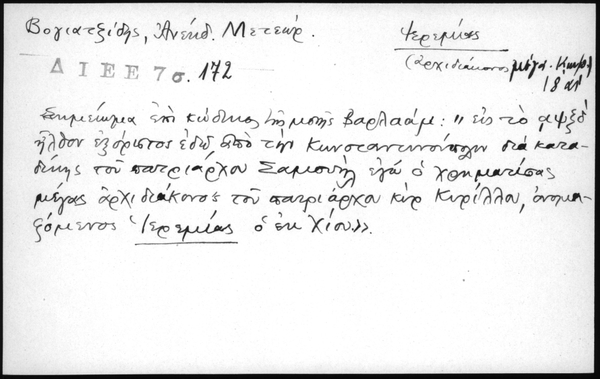 Βογιατζίδης, Ἀνέκδ. Μετεώρ.
Ἱερεμίας
(ἀρχιδιάκονος μέγα.
18 αἰ
ΔΙΕΕ 7 σ. 172
Σημείωμα ἐπὶ κώδικος τῆς μονῆς Βαρλαάμ: "εἰς τὸ ͵αψξδ'
ἦλθον ἐξόριστος ἐδῶ ἀπὸ τὴν Κωνσταντινούπολιν διὰ κατα-
δίκης τοῦ πατριάρχου Σαμουὴλ ἐγὼ ὁ χρηματίσας
μέγας ἀρχιδιάκονος τοῦ πατριάρχου κὺρ Κυρίλλου, ὀνομα-
ζόμενος Ἱερεμίας ὁ ἐκ Χίου».